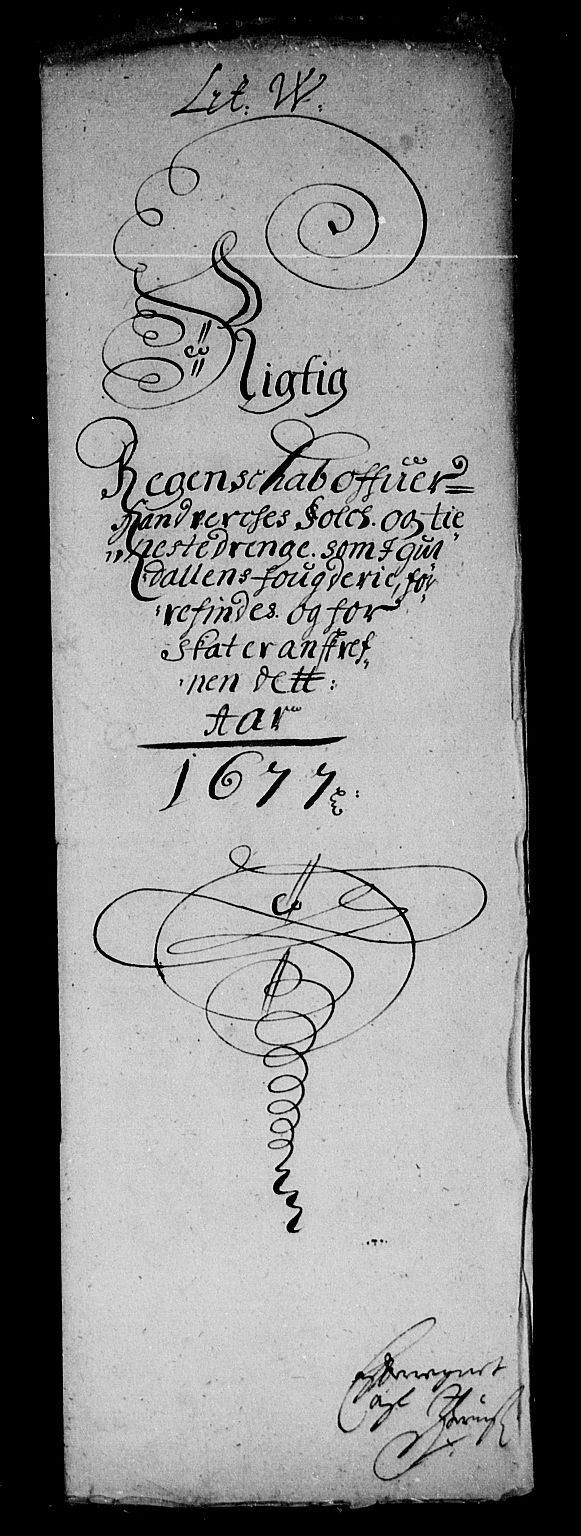 Lit. W.
Rigtig
Regenschab offuer
Handverches Folch. og tie
nestedrenge. som I gul
dallens fougderie, for
refindes. og for
skater anskref
nen dett:
Aar
1677